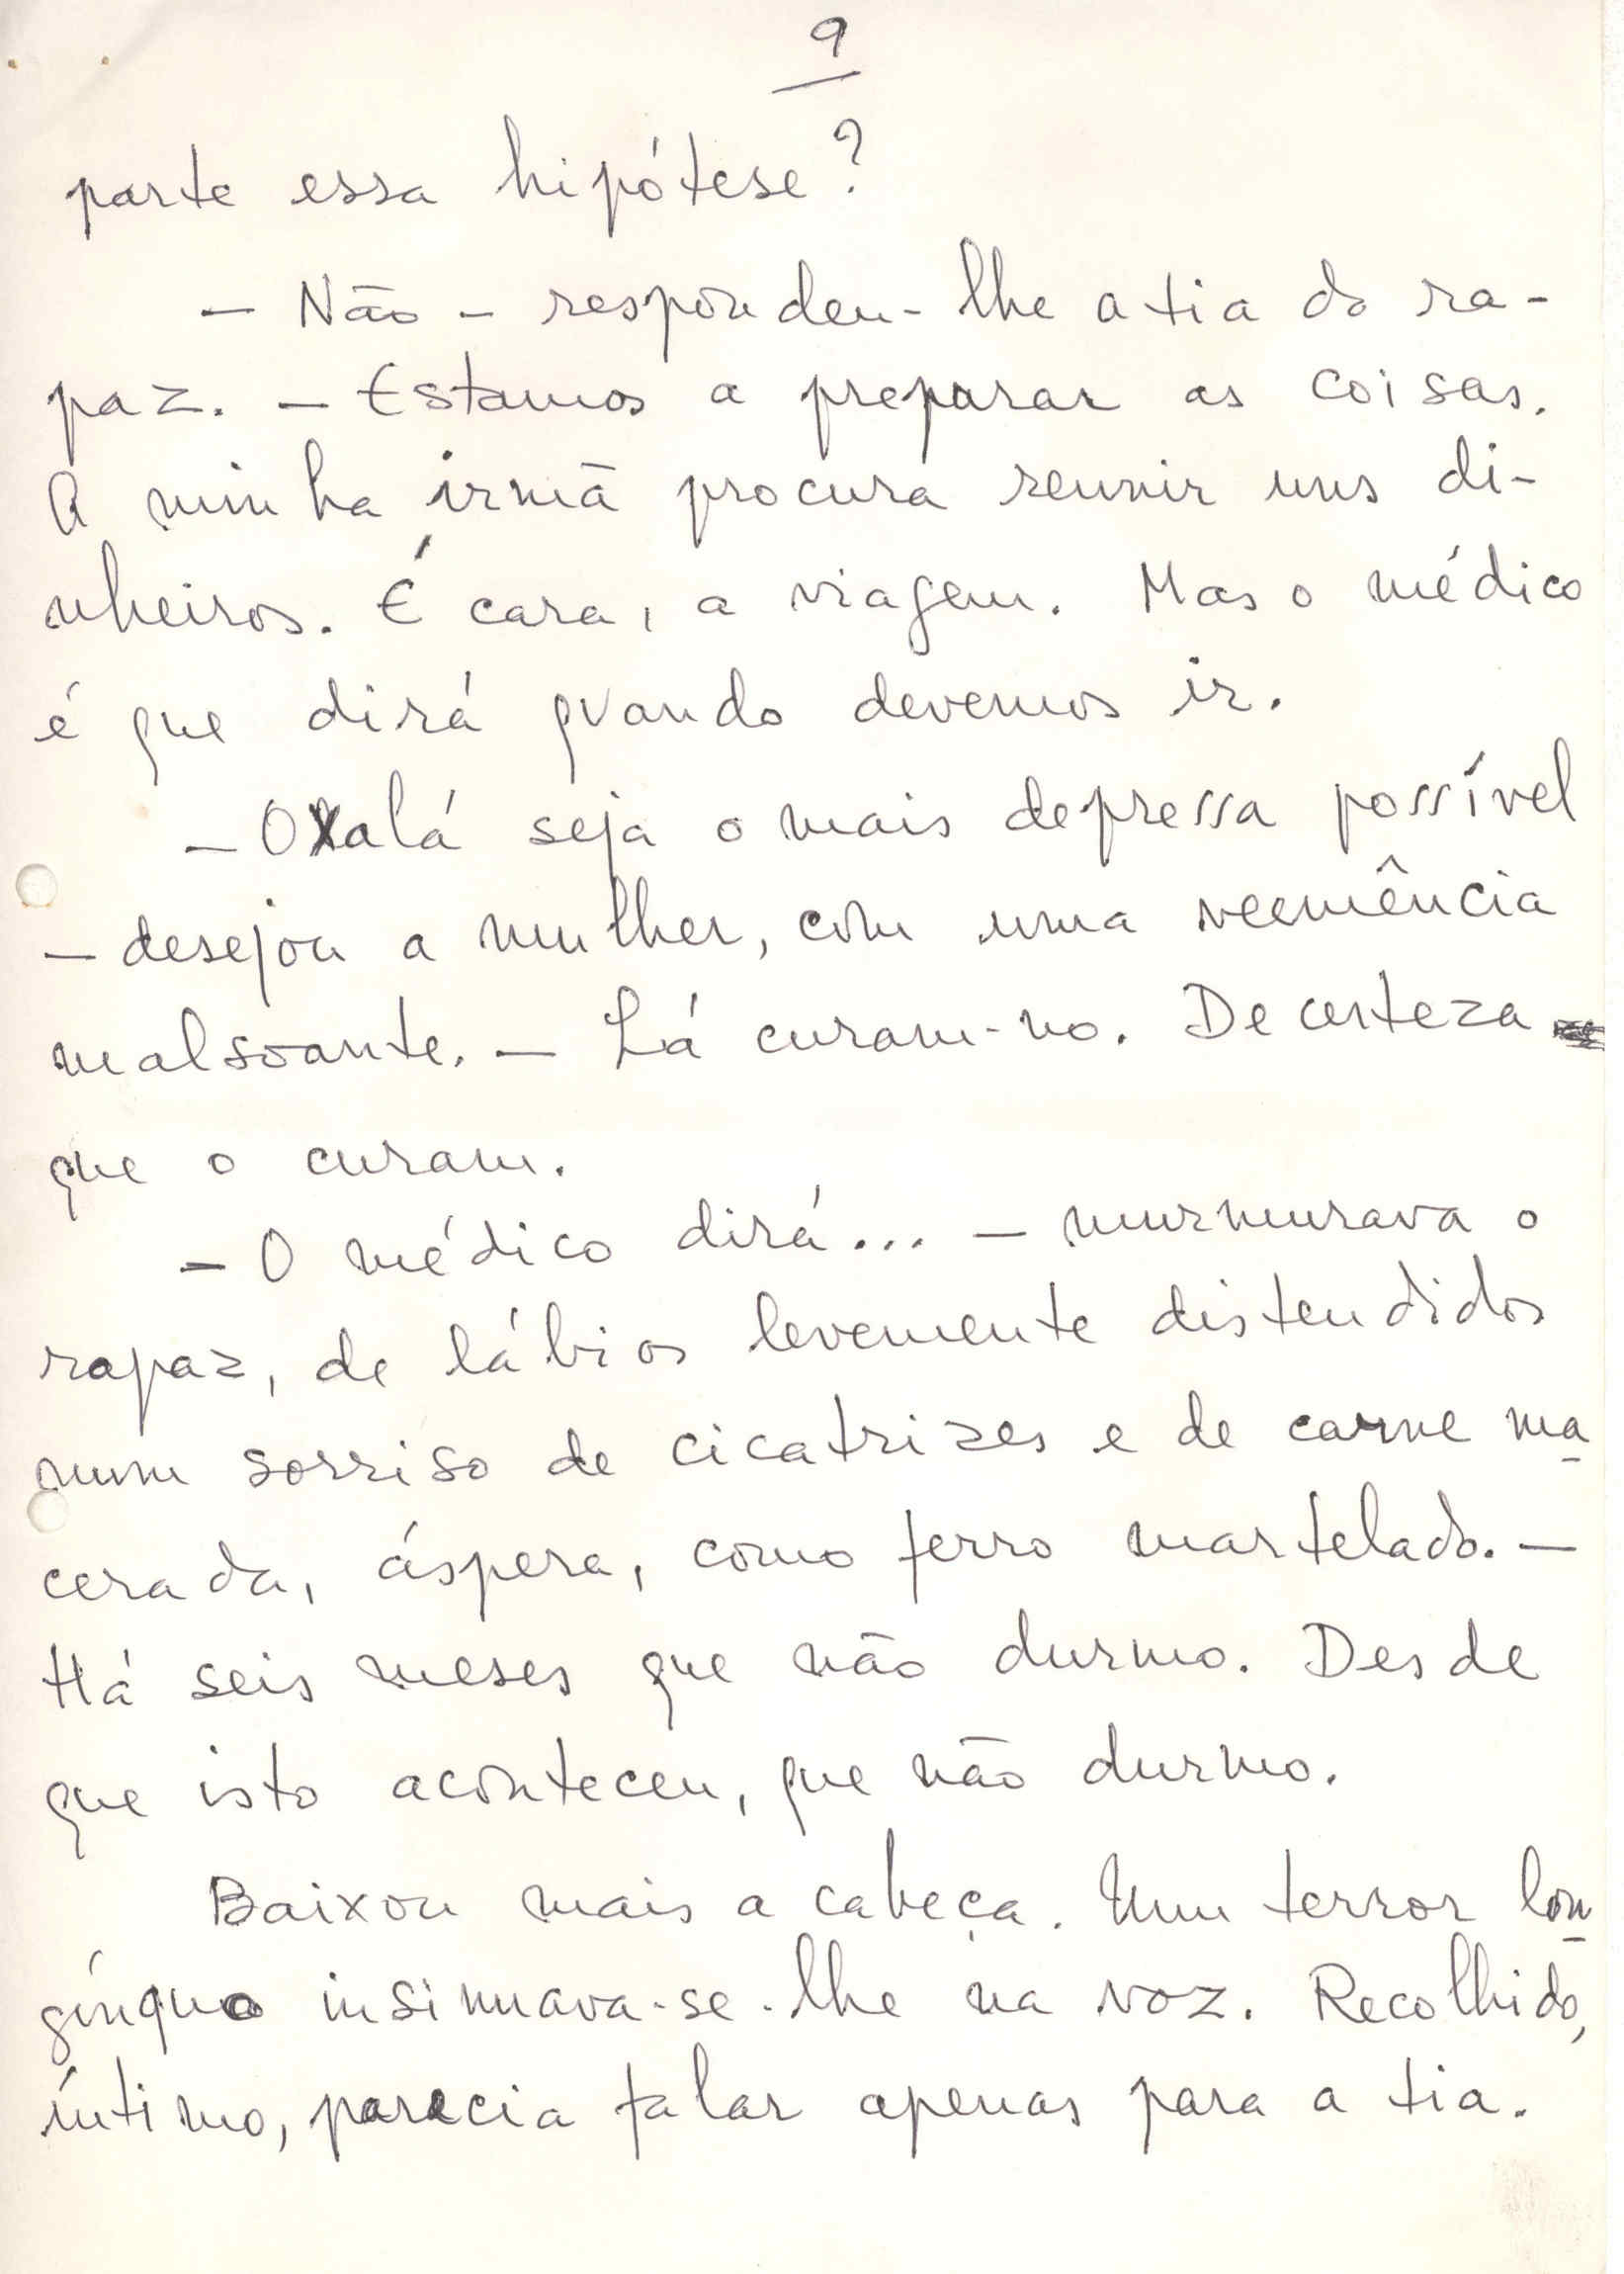 9
parte essa hipótese?
— Não — respondeu-lhe a tia do ra-
paz. — Estamos a preparar as coisas.
A minha irmã procura reunir uns di-
nheiros. É cara, a viagem. Mas o médico
é que dirá quando devemos ir.
— Oxalá seja o mais depressa possível
— desejou a mulher, com uma veemência
malsoante. — Lá curam-no. De certeza
que o curam.
— O médico dirá... — murmurava o
rapaz, de lábios levemente distendidos
num sorriso de cicatrizes e de carne ma-
cerada, áspera, como ferro martelado. —
Há seis meses que não durmo. Desde
que isto aconteceu, que não durmo.
Baixou mais a cabeça. Um terror lon-
gínquo insinuava-se-lhe na voz. Recolhido,
íntimo, parecia falar apenas para a tia.